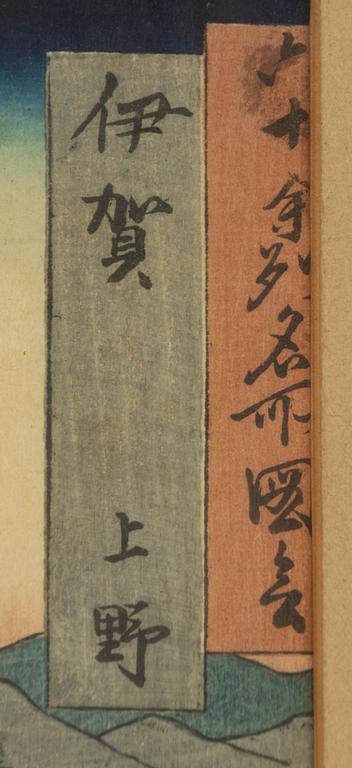 六十余州名所図会
伊賀
上野